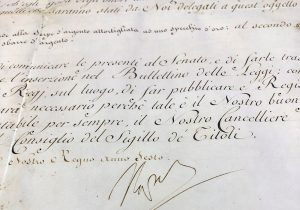 saranno stati da Noi delegati a quest' oggetto
alla Serpe d'argento attortigliata ad uno specchio d'oro: al secondo
sbarre d'argento.
comunicare le presenti al Senato, e di farle tras
l'inserzione nel Bullettino delle Leggi: co
e Regj, sul luogo, di far pubblicare e Regis
sarà necessario perchè tale è il Nostro buon
stabile per sempre, il Nostro Cancelliere
Consiglio del Sigillo de' Titoli.
Nostro Regno Anno Sesto.